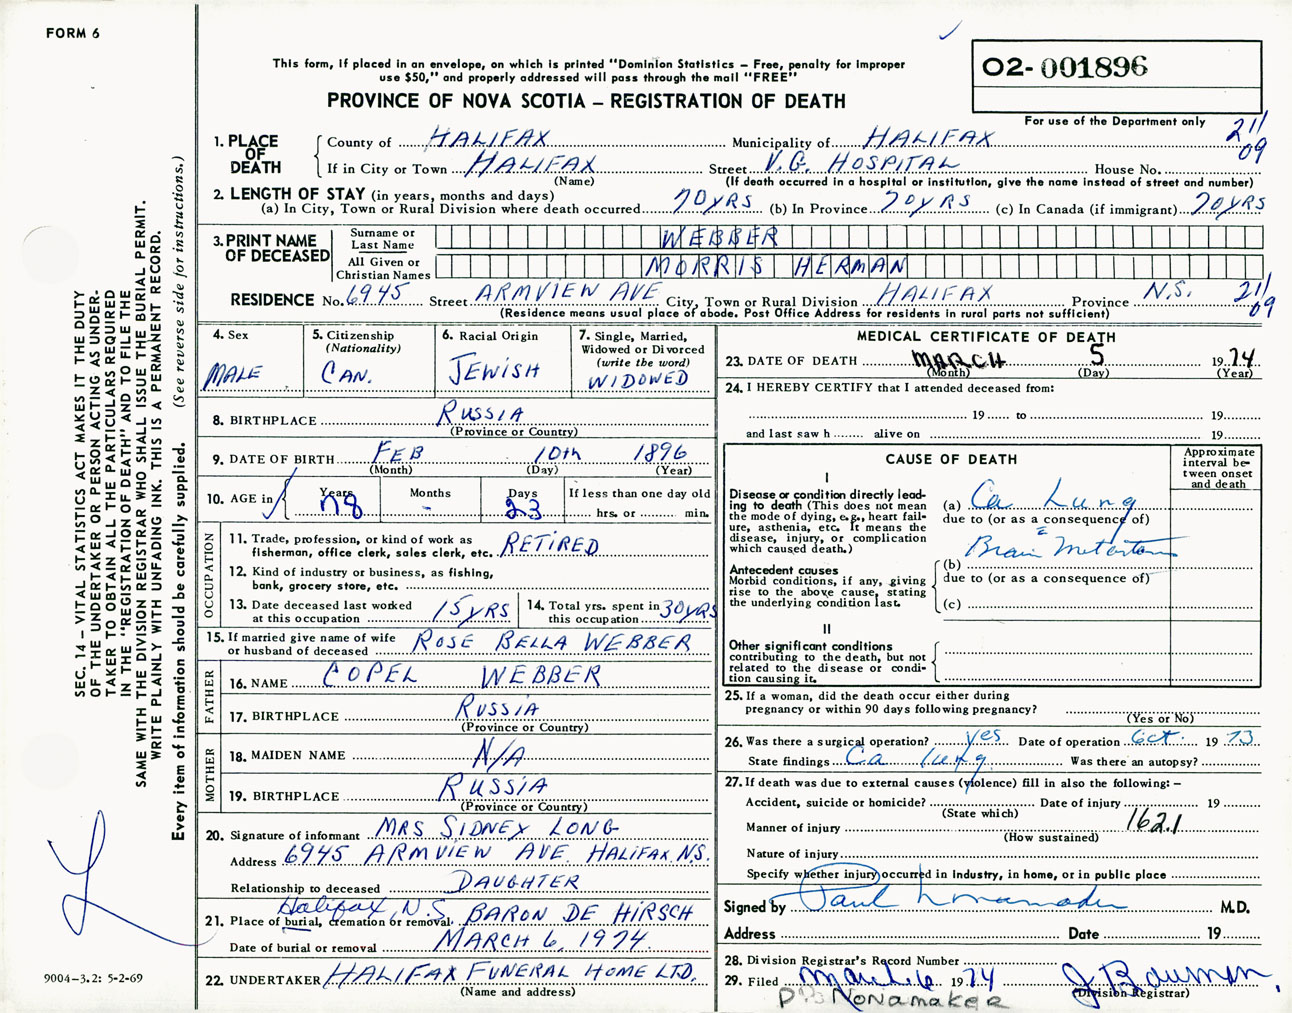 FORM 6
This form, if placed in an envelope, on which is printed "Dominion Statistics – Free, penalty for improper
use $50," and properly addressed will pass through the mail "FREE"
PROVINCE OF NOVA SCOTIA – REGISTRATION OF DEATH
02-001896
For use of the Department only
211
09
1. PLACE OF DEATH
County of HALIFAX Municipality of HALIFAX
If in City or Town HALIFAX Street V.G. HOSPITAL House No.
(Name) (If death occurred in a hospital or institution, give the name instead of street and number)
2. LENGTH OF STAY (in years, months and days)
(a) In City, Town or Rural Division where death occurred 70 YRS (b) In Province 70 YRS (c) In Canada (if immigrant) 70 YRS
3. PRINT NAME OF DECEASED
Surname or Last Name WEBBER
All Given or Christian Names MORRIS HERMAN
RESIDENCE No. 6945 Street ARMVIEW AVE City, Town or Rural Division HALIFAX Province N.S. 211
09
(Residence means usual place of abode. Post Office Address for residents in rural parts not sufficient)
4. Sex
MALE
5. Citizenship
(Nationality)
CAN.
6. Racial Origin
JEWISH
7. Single, Married,
Widowed or Divorced
(write the word)
WIDOWED
8. BIRTHPLACE RUSSIA
(Province or Country)
9. DATE OF BIRTH FEB 10th 1896
(Month) (Day) (Year)
10. AGE in
Years 78
Months -
Days 23
If less than one day old
hrs. or min.
OCCUPATION
11. Trade, profession, or kind of work as
fisherman, office clerk, sales clerk, etc. RETIRED
12. Kind of industry or business, as fishing,
bank, grocery store, etc.
13. Date deceased last worked
at this occupation 15 YRS
14. Total yrs. spent in
this occupation 30 YRS
15. If married give name of wife
or husband of deceased ROSE BELLA WEBBER
FATHER
16. NAME COPEL WEBBER
17. BIRTHPLACE RUSSIA
(Province or Country)
MOTHER
18. MAIDEN NAME N/A
19. BIRTHPLACE RUSSIA
(Province or Country)
20. Signature of informant MRS SIDNEY LONG
Address 6945 ARMVIEW AVE. HALIFAX N.S.
Relationship to deceased DAUGHTER
Halifax, N.S.
21. Place of burial, cremation or removal BARON DE HIRSCH
Date of burial or removal MARCH 6, 1974.
22. UNDERTAKER HALIFAX FUNERAL HOME LTD.
(Name and address)
MEDICAL CERTIFICATE OF DEATH
23. DATE OF DEATH MARCH 5 1974
(Month) (Day) (Year)
24. I HEREBY CERTIFY that I attended deceased from:
19 to 19
and last saw h alive on 19
CAUSE OF DEATH
Approximate
interval be-
tween onset
and death
I
Disease or condition directly lead-
ing to death (This does not mean
the mode of dying, e.g., heart fail-
ure, asthenia, etc. It means the
disease, injury, or complication
which caused death.)
(a) Ca Lung
due to (or as a consequence of)
Brain
Antecedent causes
Morbid conditions, if any, giving
rise to the above cause, stating
the underlying condition last.
(b)
due to (or as a consequence of)
(c)
II
Other significant conditions
contributing to the death, but not
related to the disease or condi-
tion causing it.
25. If a woman, did the death occur either during
pregnancy or within 90 days following pregnancy?
(Yes or No)
26. Was there a surgical operation? yes Date of operation Oct. 1973
State findings Ca lung Was there an autopsy?
27. If death was due to external causes (violence) fill in also the following: –
Accident, suicide or homicide? Date of injury 19
(State which)
Manner of injury 162.1
(How sustained)
Nature of injury
Specify whether injury occurred in industry, in home, or in public place
Signed by Paul M.D.
Address Date 19
28. Division Registrar's Record Number
29. Filed March 6 1974 J Bauman
(Division Registrar)
NONAMAKER
SEC. 14 – VITAL STATISTICS ACT MAKES IT THE DUTY
OF THE UNDERTAKER OR PERSON ACTING AS UNDER-
TAKER TO OBTAIN ALL THE PARTICULARS REQUIRED
IN THE "REGISTRATION OF DEATH" AND TO FILE THE
SAME WITH THE DIVISION REGISTRAR WHO SHALL ISSUE THE BURIAL PERMIT.
WRITE PLAINLY WITH UNFADING INK. THIS IS A PERMANENT RECORD.
Every item of information should be carefully supplied. (See reverse side for instructions.)
9004–3.2: 5-2-69